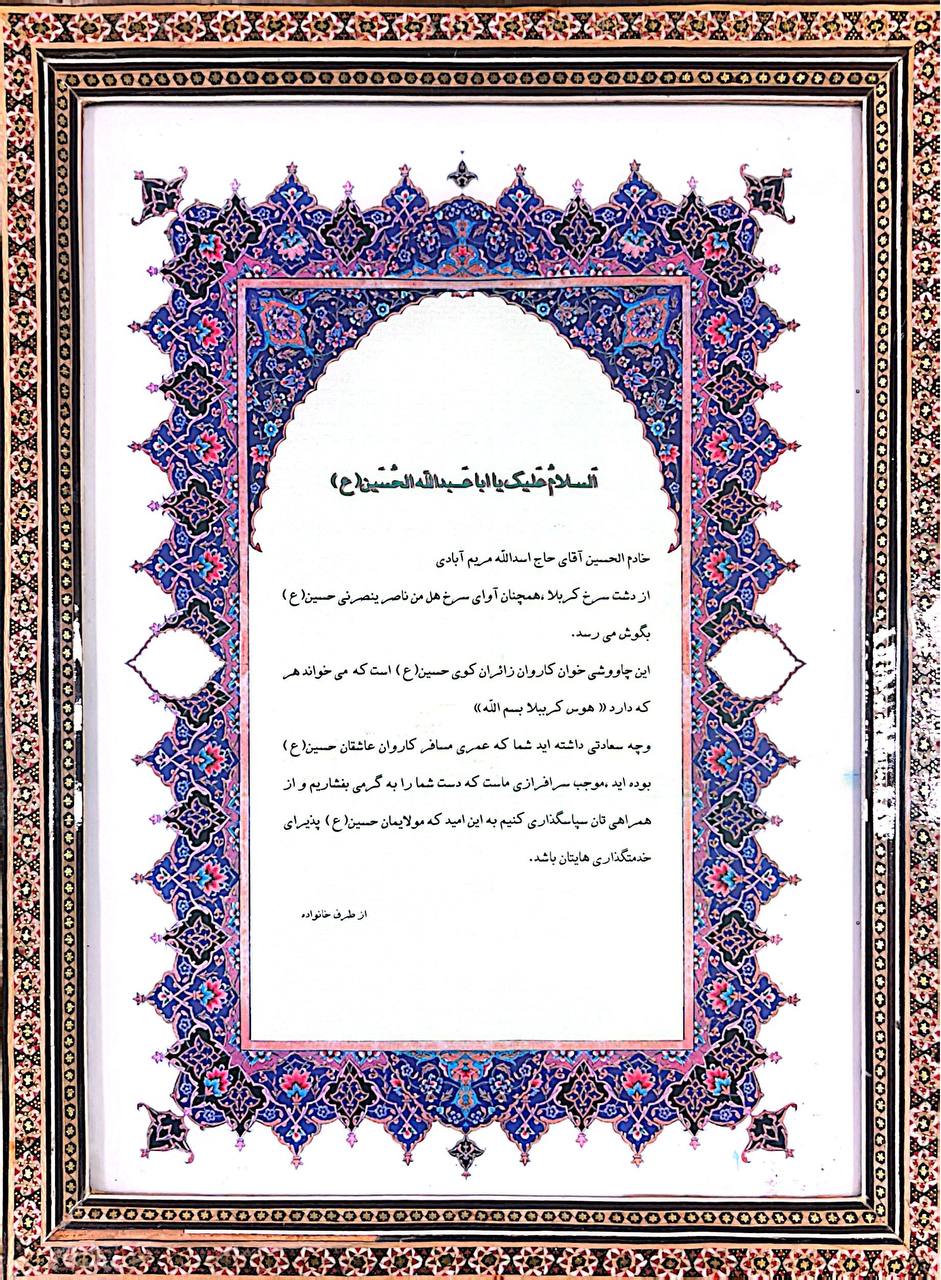 اَلسلامُ عَلیک یا ابا عَبدالله الحُسَین(ع)
خادم الحسین آقای حاج اسدالله مریم آبادی
از دشت سرخ کربلا ،همچنان آوای سرخ هل من ناصر ینصرنی حسین(ع)
بگوش می رسد.
این چاووشی خوان کاروان زائران کوی حسین(ع) است که می خواند هر
که دارد « هوس کرببلا بسم الله»
وچه سعادتی داشته اید شما که عمری مسافر کاروان عاشقان حسین(ع)
بوده اید ،موجب سرافرازی ماست که دست شما را به گرمی بفشاریم و از
همراهی تان سپاسگذاری کنیم به این امید که مولایمان حسین(ع) پذیرای
خدمتگذاری هایتان باشد.
از طرف خانواده